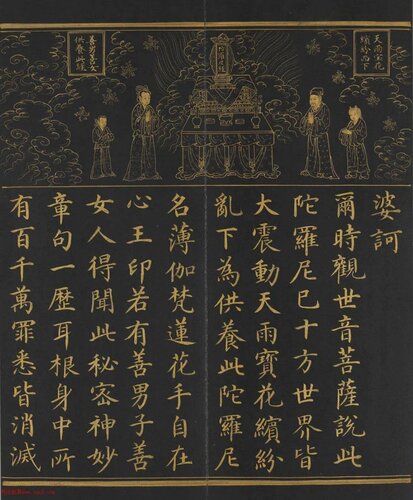 天雨寶花
繽紛而下
善男善女
供養此經
婆訶
爾時觀世音菩薩說此
陀羅尼已十方世界皆
大震動天雨寶花繽紛
亂下為供養此陀羅尼
名薄伽梵蓮花手自在
心王印若有善男子善
女人得聞此秘密神妙
章句一歷耳根身中所
有百千萬罪悉皆消滅